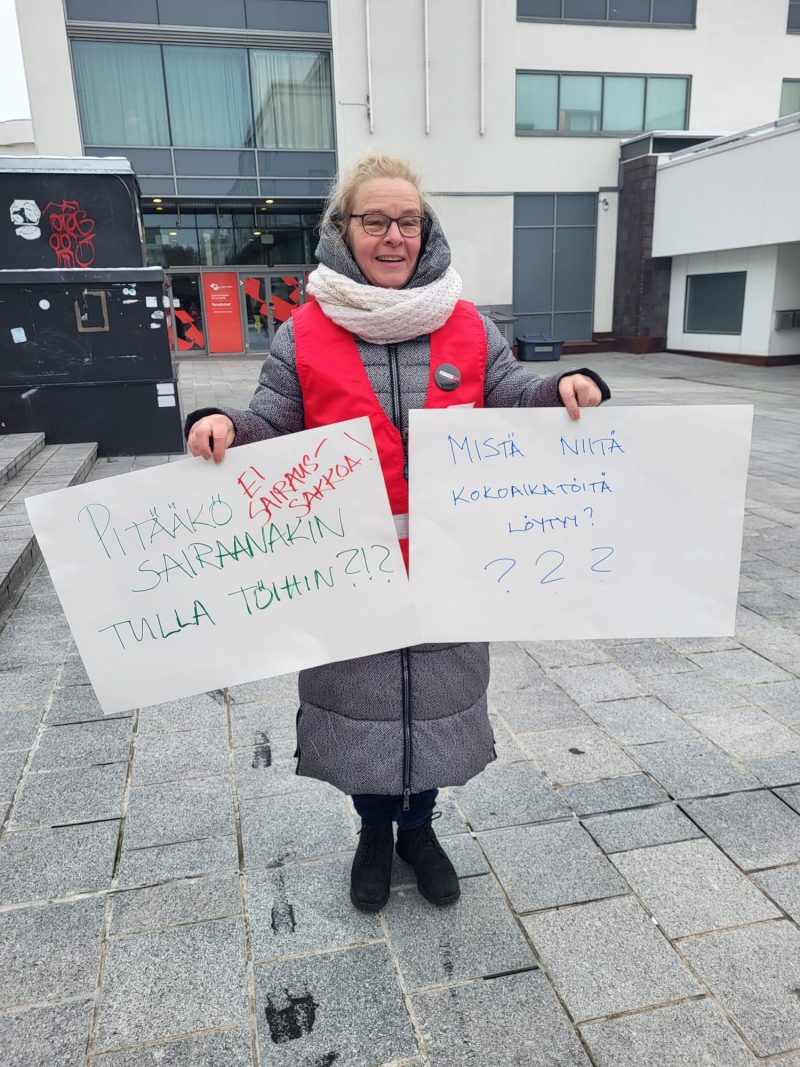 PITÄÄKÖ
SAIRAANAKIN
TULLA TÖIHIN?!?
EI
SAIRAUS-
SAKKOA!
MISTÄ NIITÄ
KOKOAIKATÖITÄ
LÖYTYY?
? ? ?